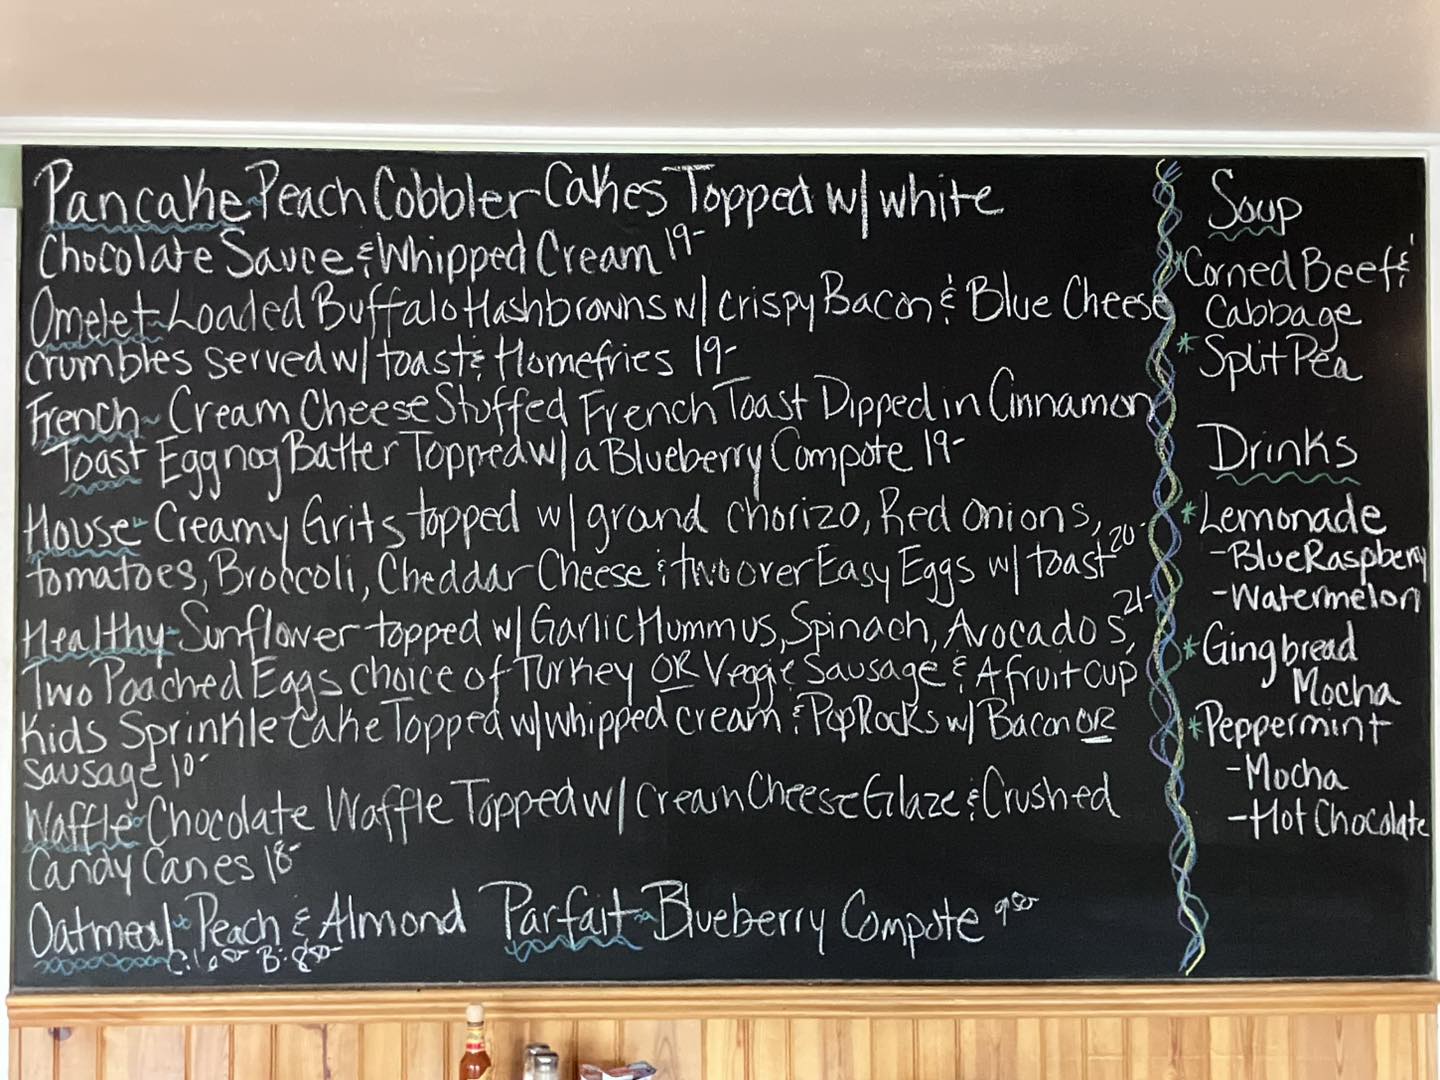 Pancake~Peach Cobbler Cakes Topped w/ white
Chocolate Sauce & Whipped Cream 19-
Omelet~Loaded Buffalo Hashbrowns w/ crispy Bacon & Blue Cheese
crumbles served w/ toast & Homefries 19-
French~ Cream Cheese Stuffed French Toast Dipped in Cinnamon
Toast Eggnog Batter Topped w/ a Blueberry Compote 19-
House~ Creamy Grits topped w/ grand chorizo, Red Onions,
tomatoes, Broccoli, Cheddar Cheese & two over Easy Eggs w/ toast 20-
Healthy~Sunflower topped w/ Garlic Hummus, Spinach, Avocados, 21-
Two Poached Eggs choice of Turkey OR Veggie Sausage & A fruit cup
Kids Sprinkle Cake Topped w/ whipped cream & Pop Rocks w/ Bacon OR
Sausage 10-
Waffle~Chocolate Waffle Topped w/ Cream Cheese Glaze & Crushed
Candy Canes 18-
Oatmeal~Peach & Almond Parfait~Blueberry Compote 9.50-
B: 8.50-
Soup
*Corned Beef &
Cabbage
*Split Pea
Drinks
*Lemonade
-Blue Raspberry
-Watermelon
*Gingbread
Mocha
*Peppermint
-Mocha
-Hot Chocolate